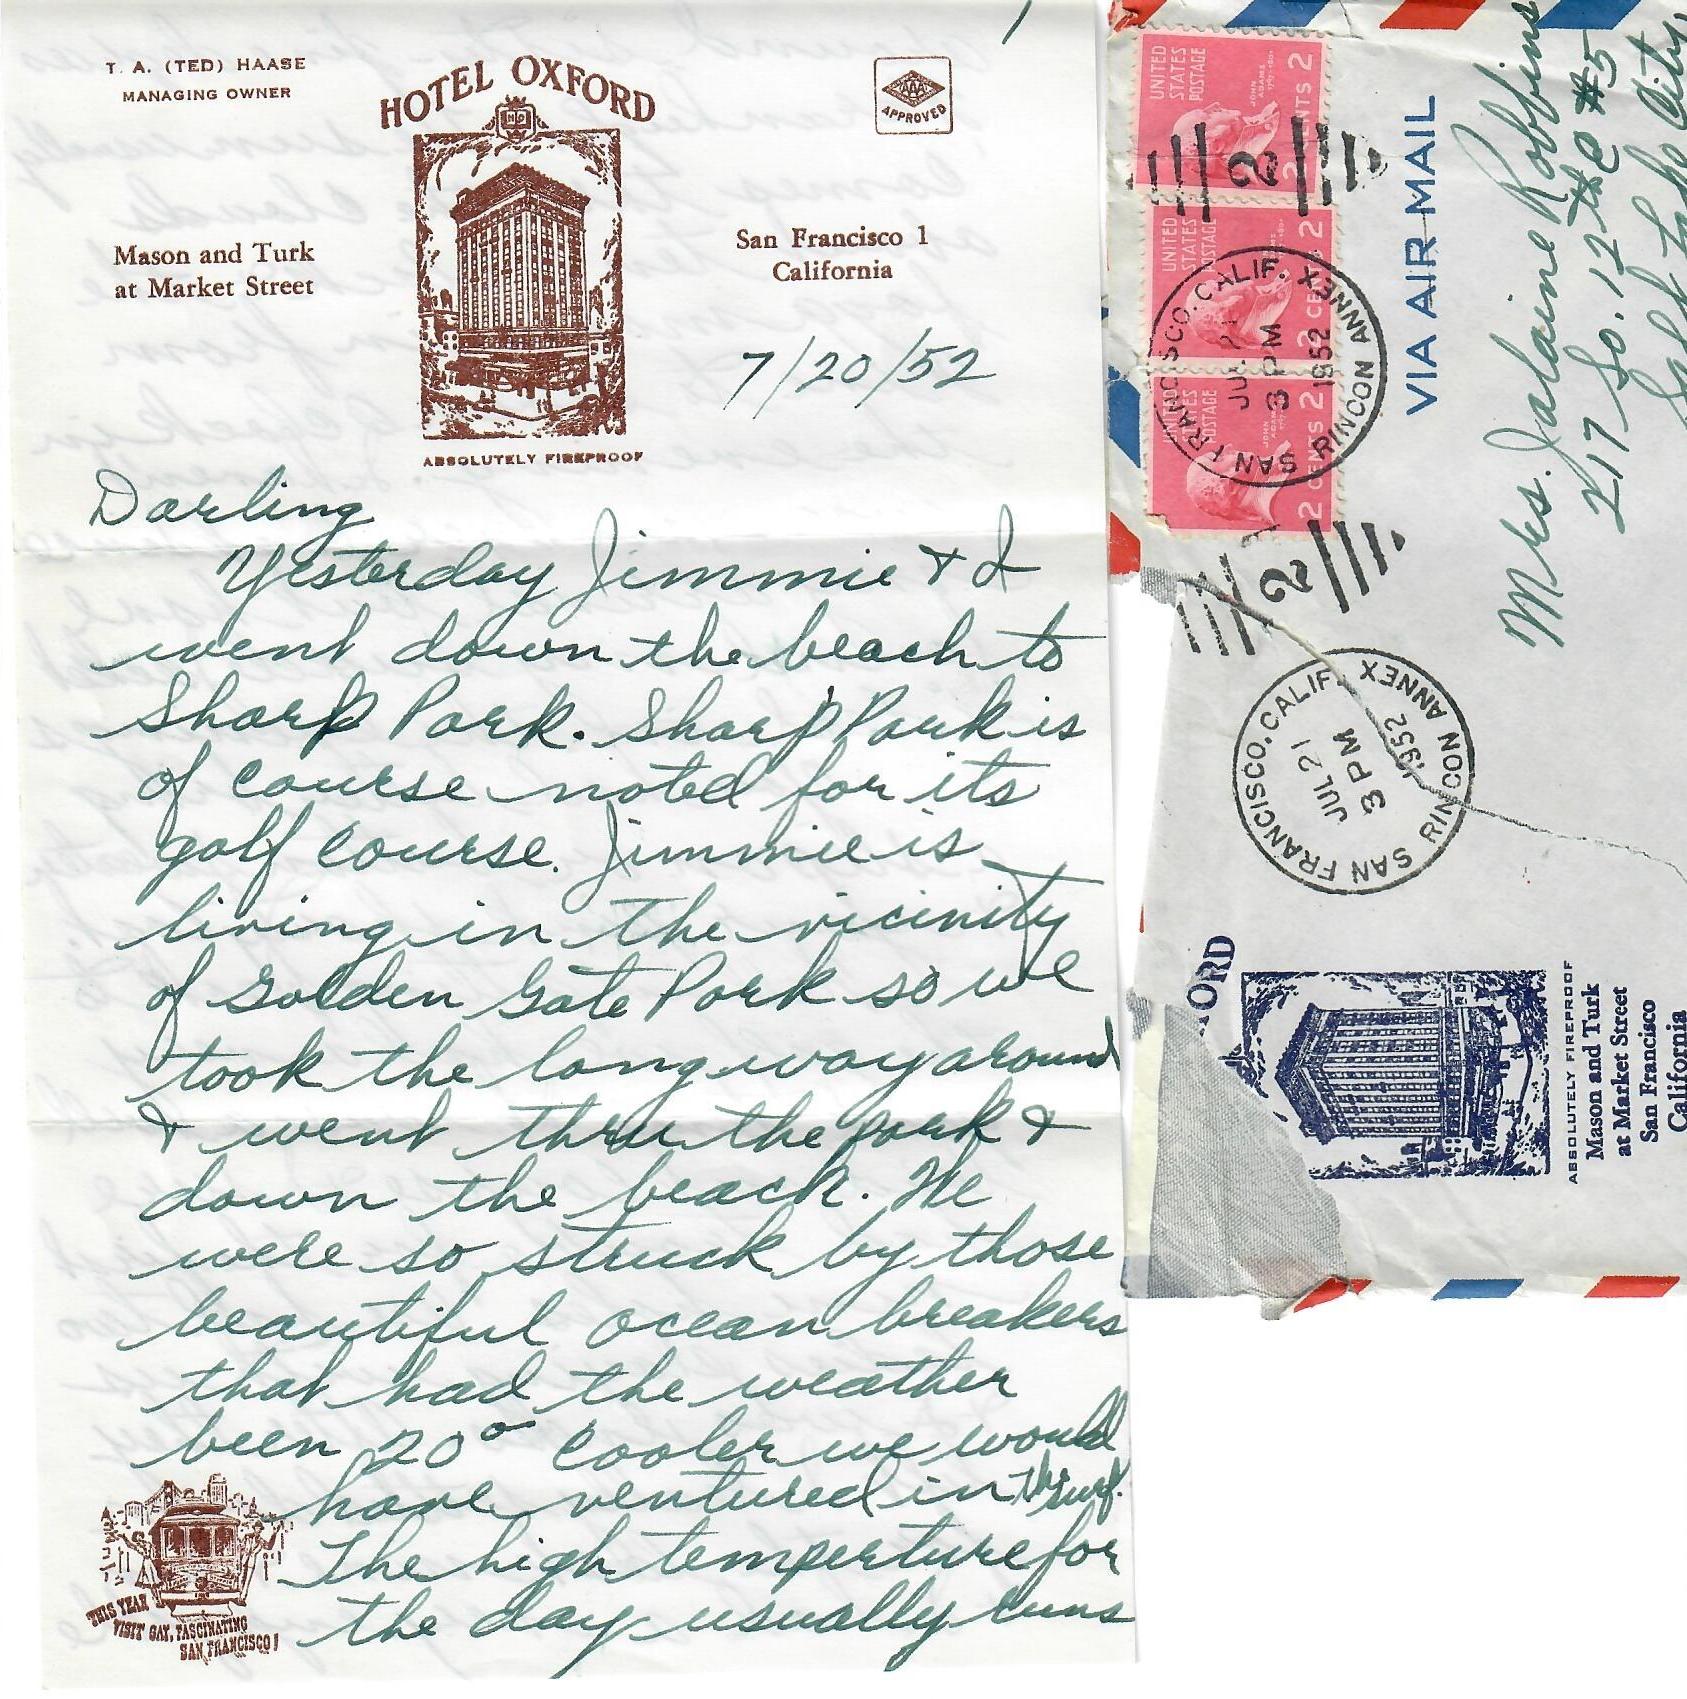 1
T. A. (TED) HAASE
MANAGING OWNER
HOTEL OXFORD
AAA
APPROVED
Mason and Turk
at Market Street
San Francisco 1
California
7/20/52
ABSOLUTELY FIREPROOF
Darling
Yesterday Jimmie & I
went down the beach to
Sharp Park. Sharp Park is
of course noted for its
golf course. Jimmie is
living in the vicinity
of Golden Gate Park so we
took the long way around
& went thru the park &
down the beach. We
were so struck by those
beautiful ocean breakers
that had the weather
been 20° cooler we would
have ventured in the surf.
The high temperture for
the day usually runs
THIS YEAR
VISIT GAY, FASCINATING
SAN FRANCISCO!
UNITED STATES POSTAGE
JOHN ADAMS
2 CENTS 2
UNITED STATES POSTAGE
2 CENTS 2
STATES POSTAGE
JOHN ADAMS
2 CENTS 2
2
2
SAN FRANCISCO, CALIF. RINCON ANNEX
3 PM
1952
SAN FRANCISCO, CALIF. RINCON ANNEX
JUL 21
3 PM
1952
VIA AIR MAIL
Mrs. Jalaine Robbins
217 So. 12th E #5
Salt Lake City
ORD
ABSOLUTELY FIREPROOF
Mason and Turk
at Market Street
San Francisco
California